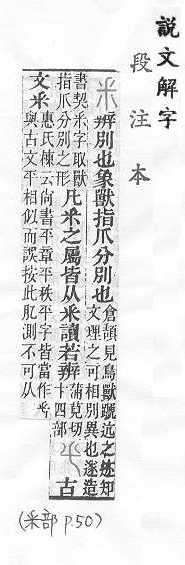 說文解字
段注本
釆 辨別也象獸指爪分別也
倉頡見鳥獸蹏迒之迹知
文理之可相別異也遂造
書契釆字取獸
指爪分別之形
凡釆之屬皆从釆讀若辨
蒲莧切
十四部
古
文釆
惠氏棟云尚書平章平秩平字皆當作
與古文平相似而誤按此肊測不可从
(釆部 P.50)